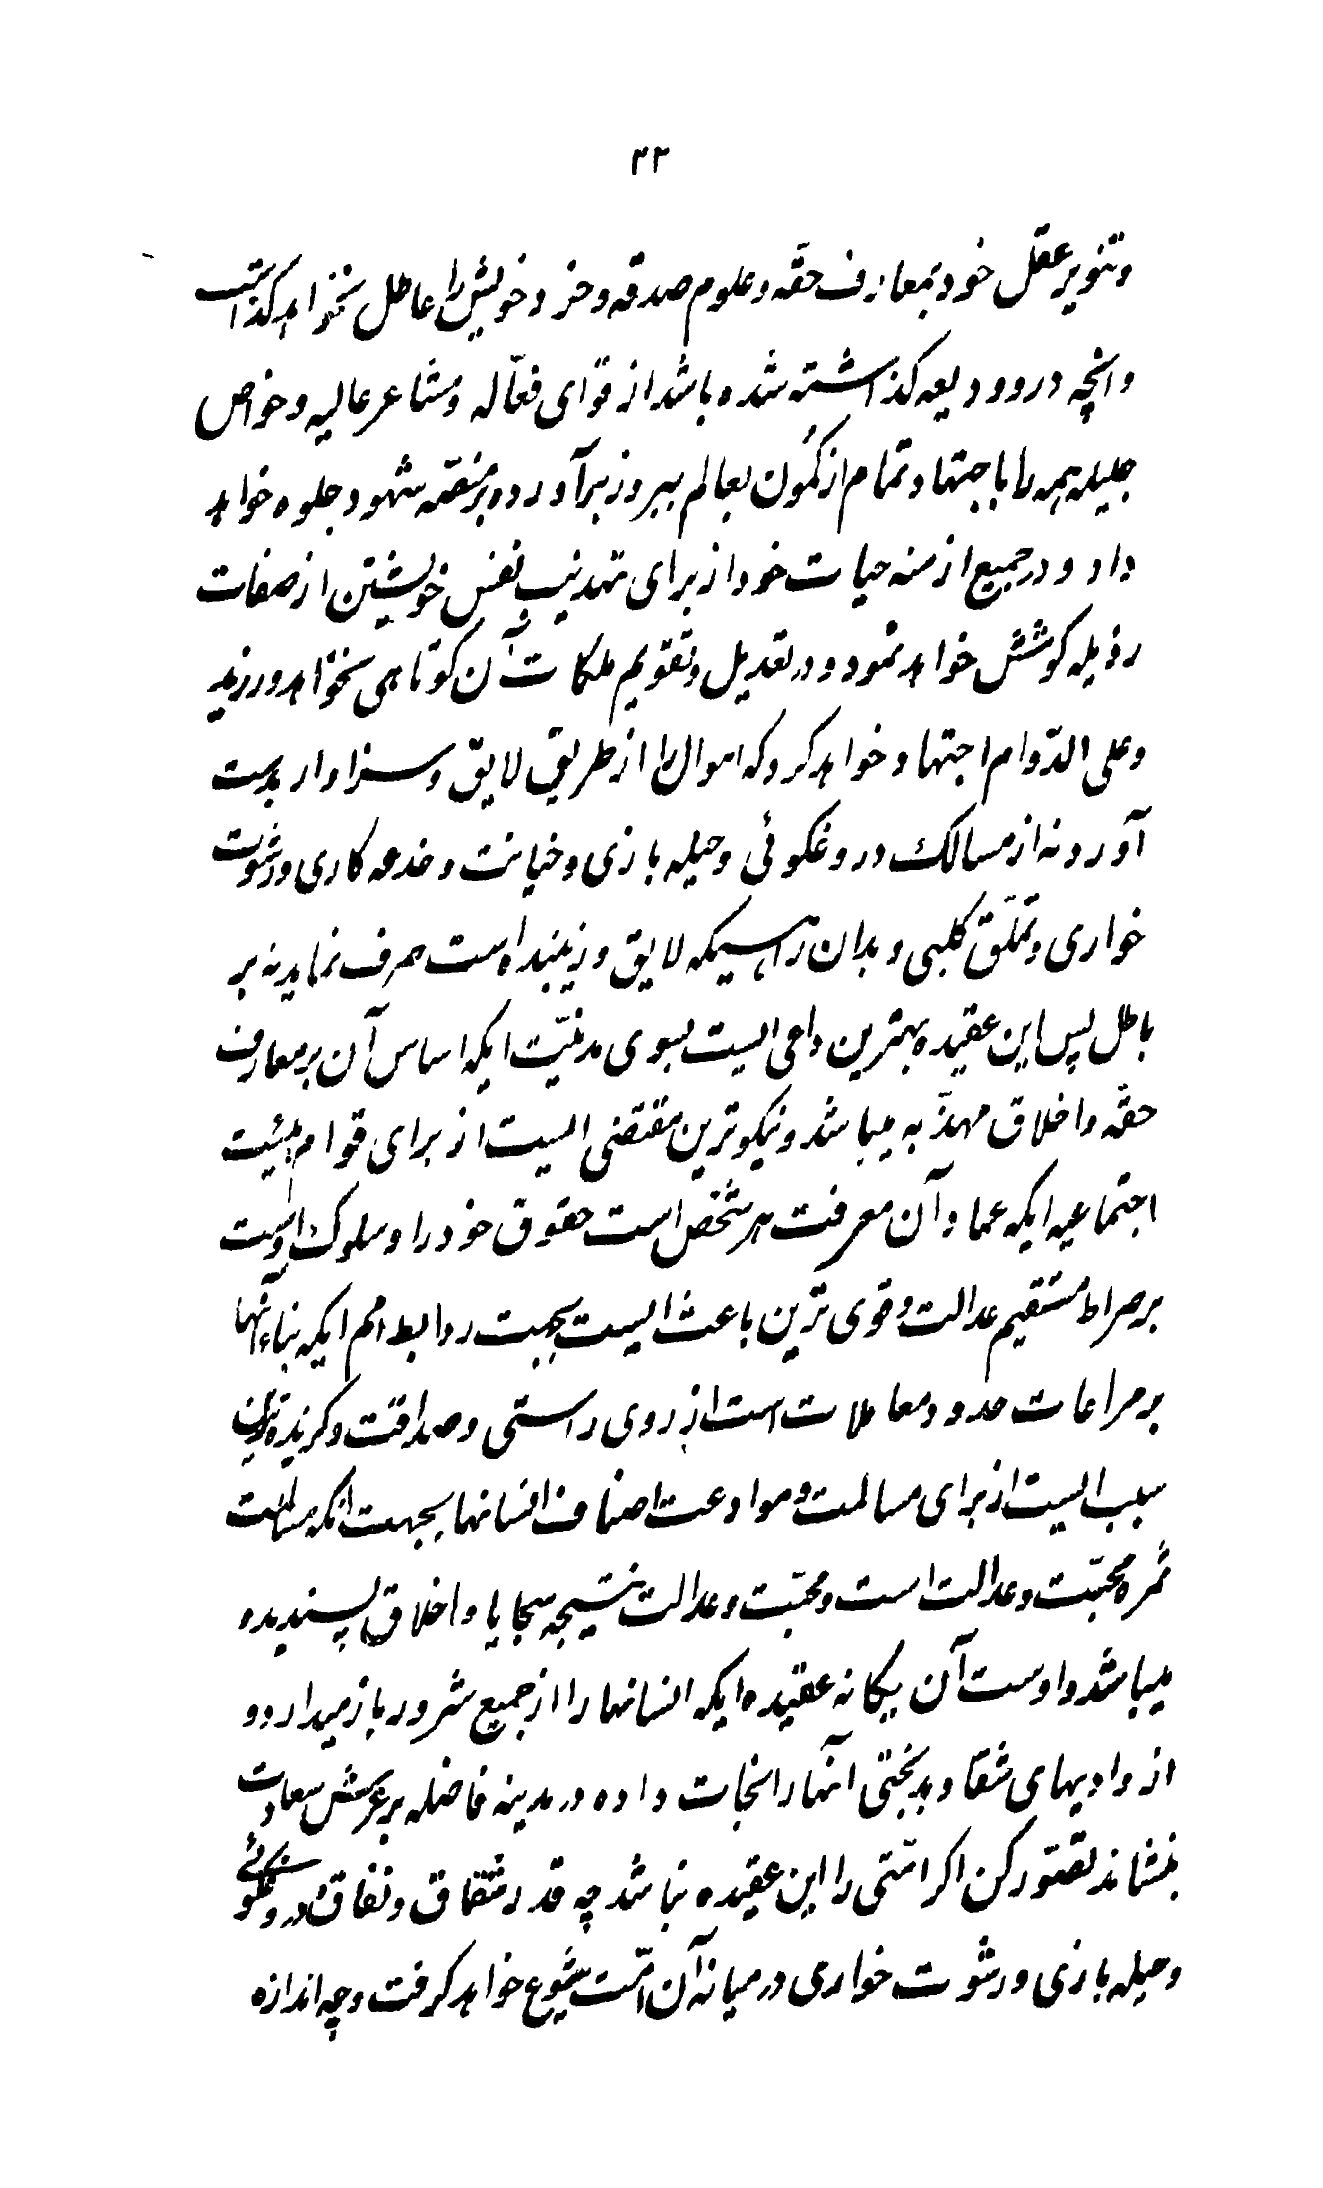 ۳۳
و تنویر عقل خود بمعارف حقّه و علوم صدقه و خرد خویش را عاطل نخواهد کذاشت
و انچه در وودیعه کذاشته شده باشد از قوّای فعّاله و مشاعر عالیه و خواص
جلیله همه را با جتهاد تمام از کُمون بعالم ببروز برآورده بر منصّه شهود جلوه خواهد
داد و در جمیع ازمنه حیات خود از برای تهذیب نفس خویشتن از صفات
رذیله کوشش خواهد نمود و در تعدیل و تقویم ملکات آن کوتاهی نخواهد ورزید
و علی الدّوام اجتهاد خواهد کرد که اموال را از طریق لایق و سزاوار بدست
آورد نه از مسالک دروغکوئی و حیله بازی و خیانت و خدعه کاری و رشوت
خواری و تملّق کلبی و بدان راهیکه لایق و زیبنده است صرف نماید نه بر
باطل پس این عقیده بهترین داعی الیست بسوی مدنیّت ایکه اساس آن بر معارف
حقّه و اخلاق مهذّبه میباشد و نیکوترین مقتضی الیست از برای قوام هیئیت
اجتماعیه ایکه عماد آن معرفت هر شخص است حقوق خود را و سلوک اوست
بر صراط مستقیم عدالت و قوی ترین باعث الیست بجهت روابط امم ایکه بناء انها
بر مراعات حدود معاملات است از روی راستی و صداقت و کزیده ترین
سبب الیست از برای مسالمت و موادعت اصناف انسانها بجهت انکه مسالمت
ثمره محبّت و عدالت است و محبّت و عدالت نتیجه سجایا و اخلاق پسندیده
میباشد و اوست آن یکانه عقیده ایکه انسانها را از جمیع شرور باز میدارد و
از وادیهای شقا و بدبختی انها را نجات داده در مدینه فاضله بر عرش سعادت
بنشاند تصّور کن اکر امّتی را این عقیده نباشد چه قدر شقاق و نفاق و دروغکوئی
و حیله بازی و رشوت خواری در میانه آن امّت شیوع خواهد کرفت و چه اندازه